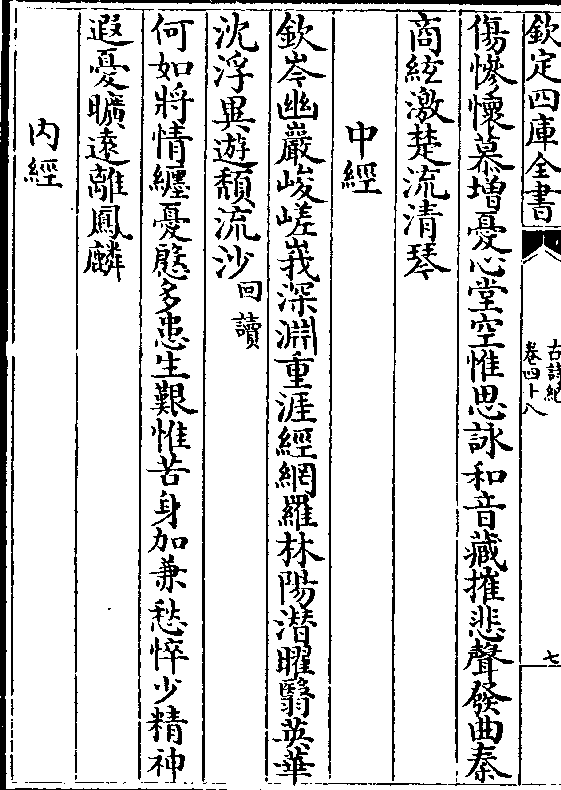 欽定四庫全書
古詩紀
卷四十八
七
傷慘懷慕增憂心堂空惟思詠和音藏摧悲聲發曲秦
商絃激楚流清琴
中經
欽岑幽巖峻嵯峩深淵重涯經網羅林陽潛曜翳英華
沈浮異遊頽流沙回讀
何如將情纏憂慇多患生艱惟苦身加兼愁悴少精神
遐憂曠遠離鳳麟
内經